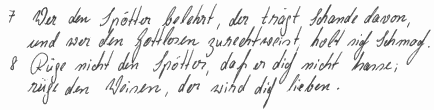 7 Wer den Spötter belehrt, der trägt Schande davon,
und wer den Gottlosen zurechtweist, holt sich Schmach.
8 Rüge nicht den Spötter, daß er dich nicht hasse;
rüge den Weisen, der wird dich lieben.